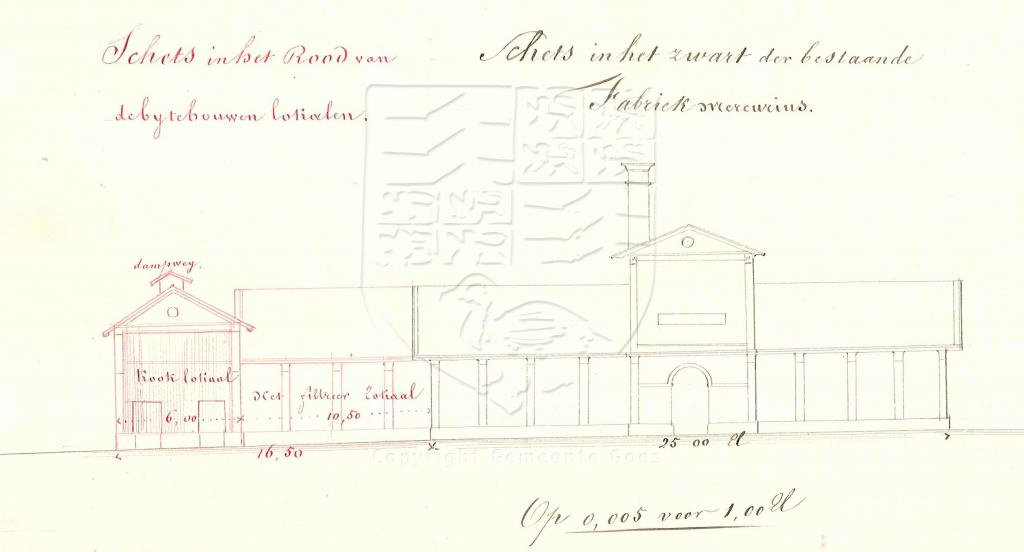 Schets in het Rood van
de by te bouwen lokalen.
Schets in het zwart der bestaande
Fabriek Mercurius.
dampweg.
Kook lokaal
Het filtreer lokaal
6,00
10,50
16,50
25 00 El
Copyright Gemeente Goes
Op 0,005 voor 1,00 El